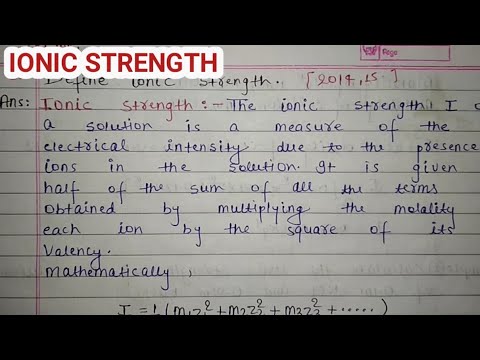 IONIC STRENGTH
Page
Define ionic strength. [2014,15]
Ans: Ionic strength :- The ionic strength I
a solution is a measure of the
electrical intensity due to the presence
ions in the solution. It is given
half of the sum of all the terms
obtained by multiplying the molality
each ion by the square of its
Valency.
Mathematically,
I = ½ (m₁z₁² + m₂z₂² + m₃z₃² + .....)